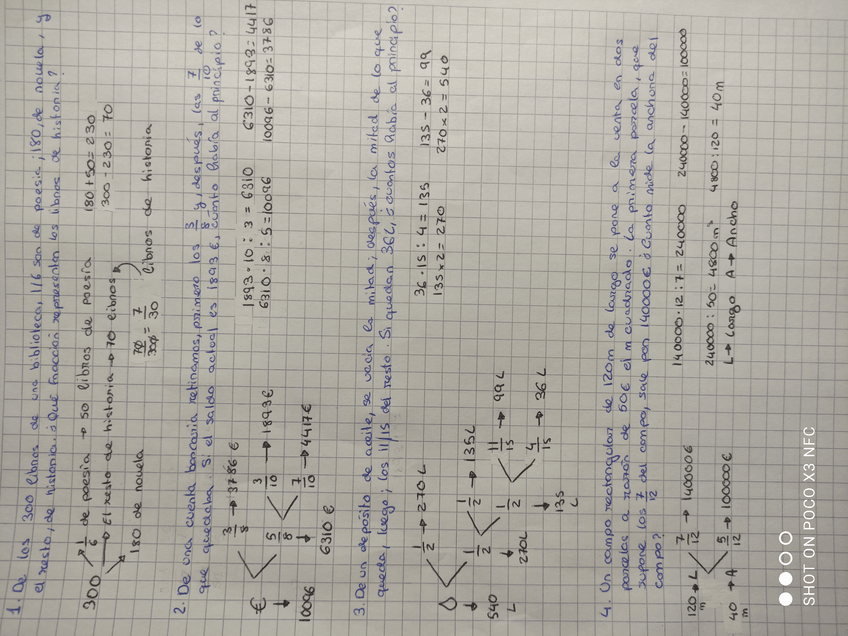 1. De los 300 libros de una biblioteca, 1/6 son de poesia; 180, de novela, y
el resto, de historia. ¿Que fracción representan los libros de historia?
300 → 1/6 de poesia → 50 libros de poesia
→ El resto de historia → 70 libros
→ 180 de novela
70/300 = 7/30 libros de historia
180 + 50 = 230
300 - 230 = 70
2. De una cuenta bancaria retiramos, primero los 3/8 y, después, los 7/10 de lo
que quedaba. Si el saldo actual es 1893 €, ¿cuánto había al principio?
€ → 3/8 → 3786 €
5/8 → 3/10 → 1893€
7/10 → 4417€
↓ 10096
↓ 6310 €
1893 · 10 : 3 = 6310
6310 · 8 : 5 = 10096
6310 - 1893 = 4417
10096 - 6310 = 3786
3. De un deposito de aceite, se vacía la mitad; después, la mitad de lo que
queda, luego; los 11/15 del resto. Si quedan 36L, ¿cuantos había al principio?
1/2 → 270 L
1/2 → 1/2 → 135L
1/2 → 11/15 → 99L
4/15 → 36L
↓ 540 L
↓ 270L
↓ 135 L
36 · 15 : 4 = 135
135 x 2 = 270
135 - 36 = 99
270 x 2 = 540
4. Un campo rectangular de 120m de largo se pone a la venta en dos
parcelas a razón de 50€ el m cuadrado. La primera parcela, que
supone los 7/12 del campo, sale por 140000€ ¿Cuánto mide la anchura del
campo?
120 m → L 7/12 → 140000€
40 m → A 5/12 → 100000€
140000 · 12 : 7 = 240000
240000 - 140000 = 100000
240000 : 50 = 4800 m²
4800 : 120 = 40m
L → Largo A → Ancho
SHOT ON POCO X3 NFC